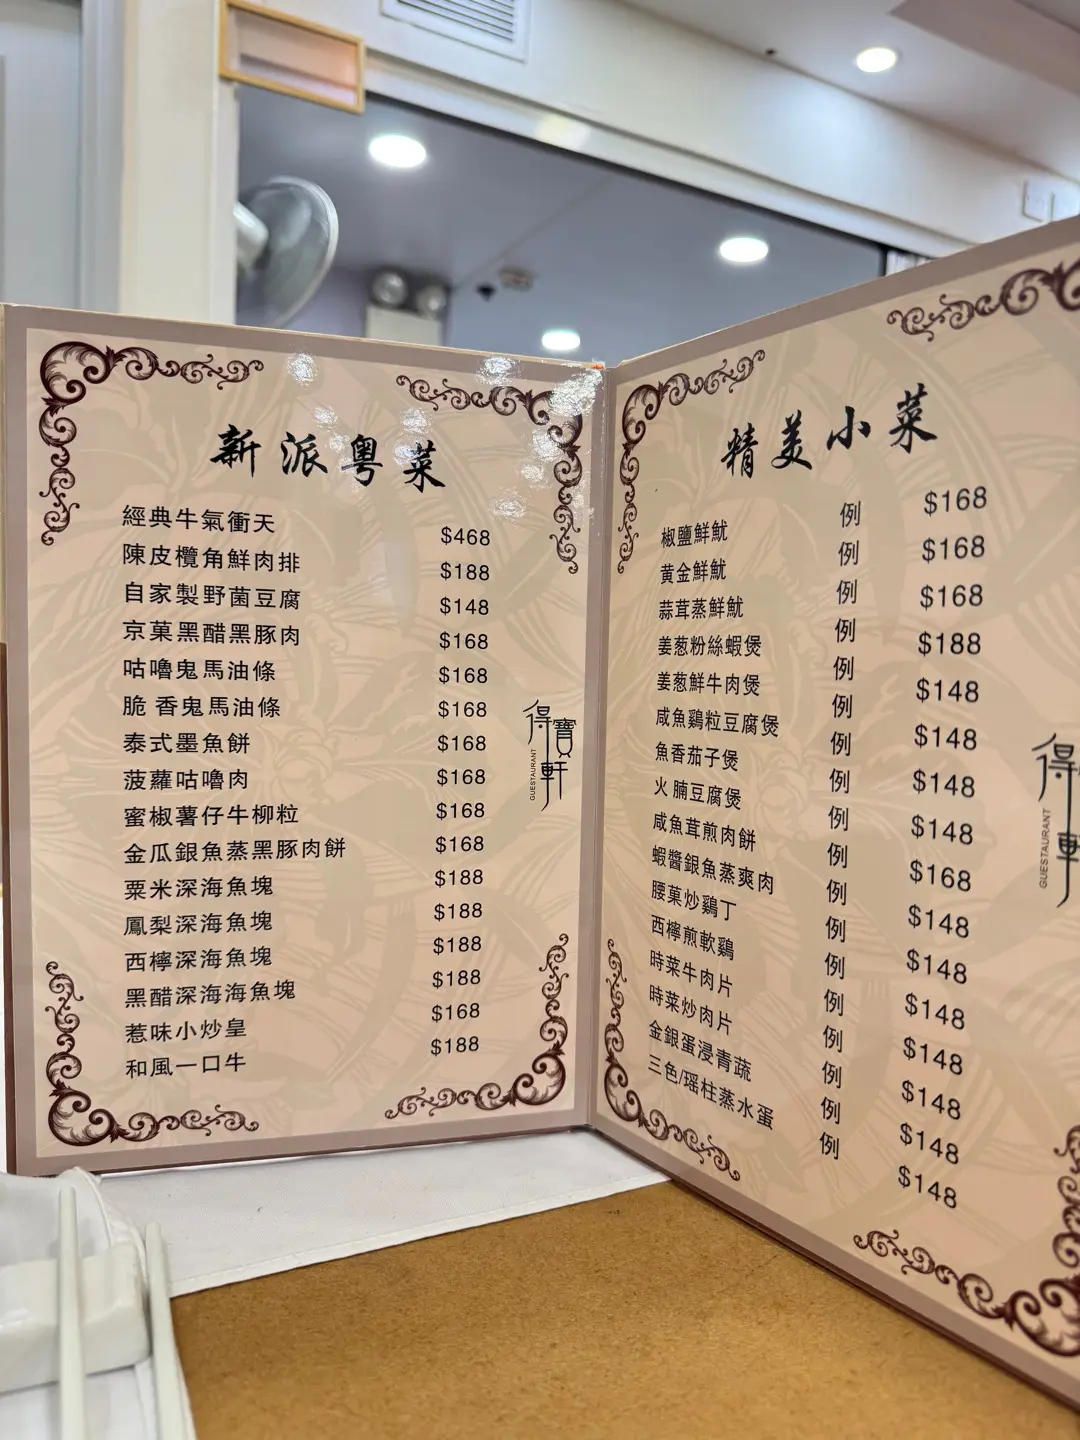 新派粵菜
經典牛氣衝天 $468
陳皮欖角鮮肉排 $188
自家製野菌豆腐 $148
京菓黑醋黑豚肉 $168
咕嚕鬼馬油條 $168
脆 香鬼馬油條 $168
泰式墨魚餅 $168
菠蘿咕嚕肉 $168
蜜椒薯仔牛柳粒 $168
金瓜銀魚蒸黑豚肉餅 $168
粟米深海魚塊 $188
鳳梨深海魚塊 $188
西檸深海魚塊 $188
黑醋深海海魚塊 $188
惹味小炒皇 $168
和風一口牛 $188
得寶軒
GUESTAURANT
精美小菜
椒鹽鮮魷 例 $168
黄金鮮魷 例 $168
蒜茸蒸鮮魷 例 $168
姜葱粉絲蝦煲 例 $188
姜葱鮮牛肉煲 例 $148
咸魚鷄粒豆腐煲 例 $148
魚香茄子煲 例 $148
火腩豆腐煲 例 $148
咸魚茸煎肉餅 例 $168
蝦醬銀魚蒸爽肉 例 $148
腰菓炒鷄丁 例 $148
西檸煎軟鷄 例 $148
時菜牛肉片 例 $148
時菜炒肉片 例 $148
金銀蛋浸青蔬 例 $148
三色/瑶柱蒸水蛋 例 $148
得
軒
GUESTAURANT